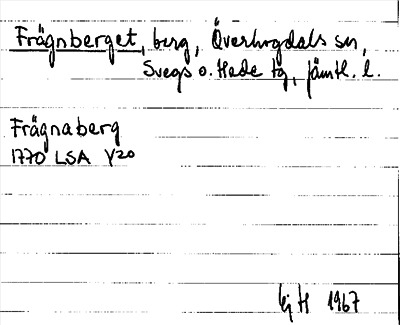 Frägnberget, berg, Överhogdals sn,
Svegs o. Hede tg, jämtl. l.
Frägnaberg
1770 LSA Y20
ej H 1967